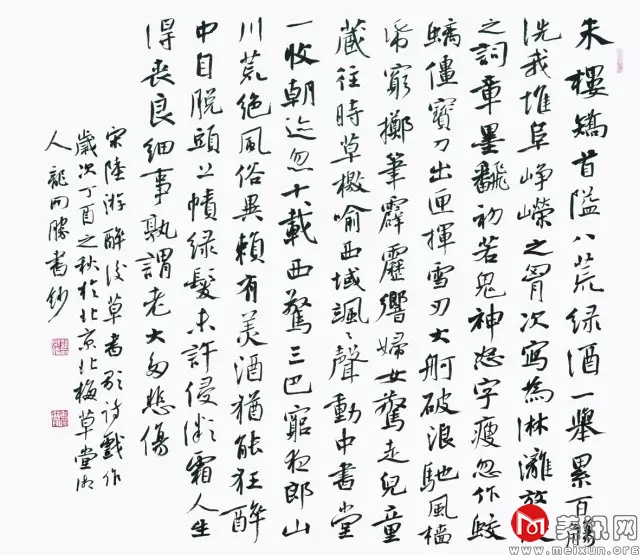 朱樓矯首隘八荒绿酒一舉累百觴
洗我堆阜崢嶸之胷次寫為淋灕放縱
之詞章墨飜初若鬼神怒字瘦忽作蛟
螭僵寶刀出匣揮雪刃大舸破浪馳風檣
帋窮擲筆霹靂響婦女驚走兒童
藏往時草檄喻西域颯〻聲動中書堂
一收朝迹忽十載西驚三巴窮夜郎山
川荒絶風俗異賴有美酒猶能狂醉
中自脱頭上幘绿髮未許侵微霜人生
得喪良細事孰謂老大多悲傷
宋陸游醉後草書歌詩戲作
歲次丁酉之秋於北京北梅草堂湖
人龍開勝書鈔
美讯网
www.meixun.org